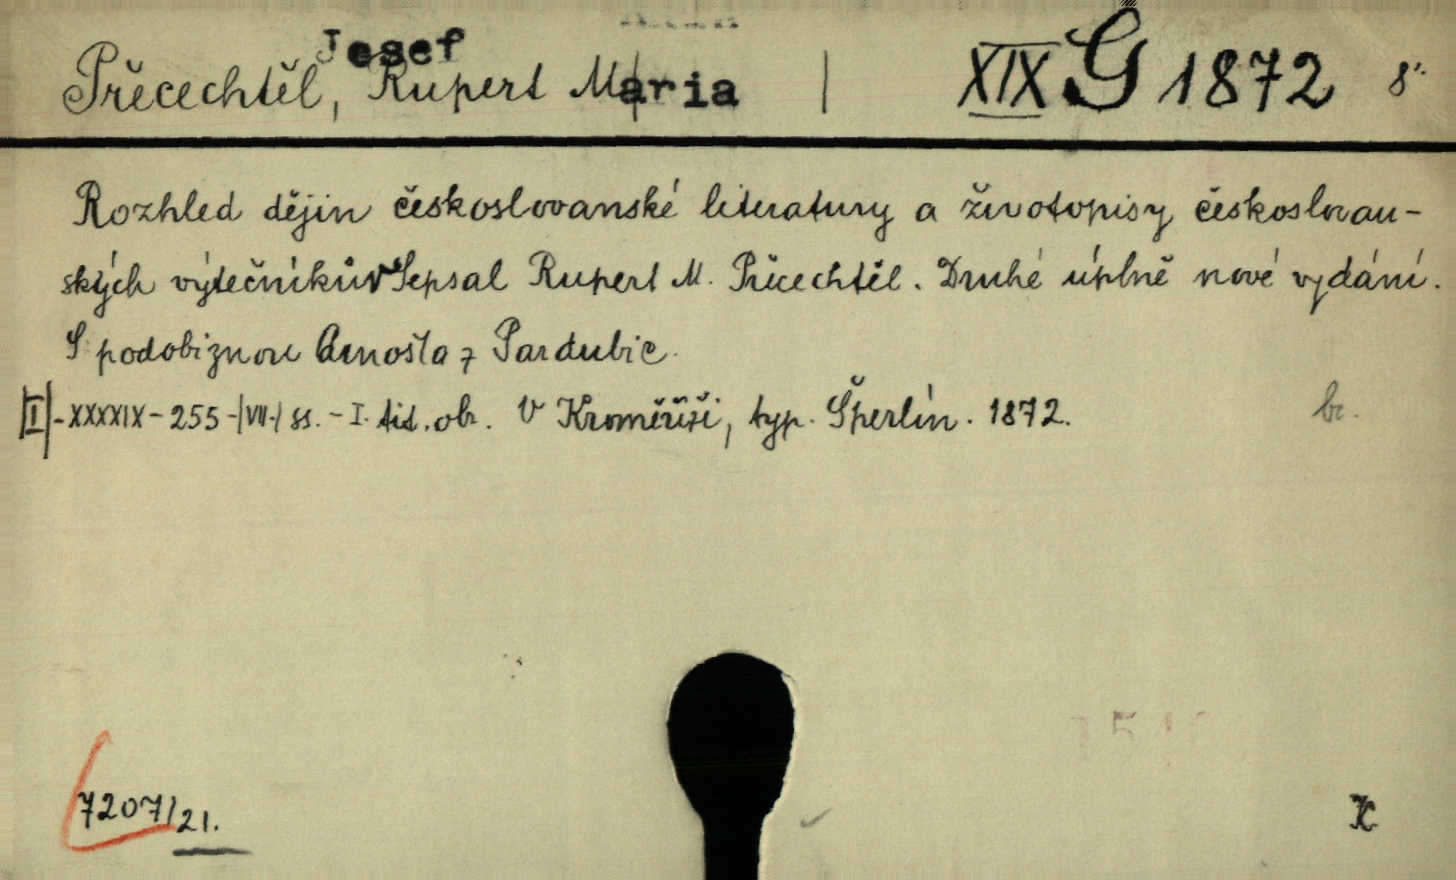 Josef
Přecechtěl, Rupert Maria | XIX G 1872 8°.
Rozhled dějin českoslovanské literatury a životopisy českoslovan-
ských výtečníkův Sepsal Rupert M. Přecechtěl. Druhé úplně nové vydání.
S podobiznou Arnošta z Pardubic.
|I|-XXXXIX-255-|VII-| ss. - I. tit. obr. V Kroměříži, typ. Šperlín. 1872. br.
7207/21. K